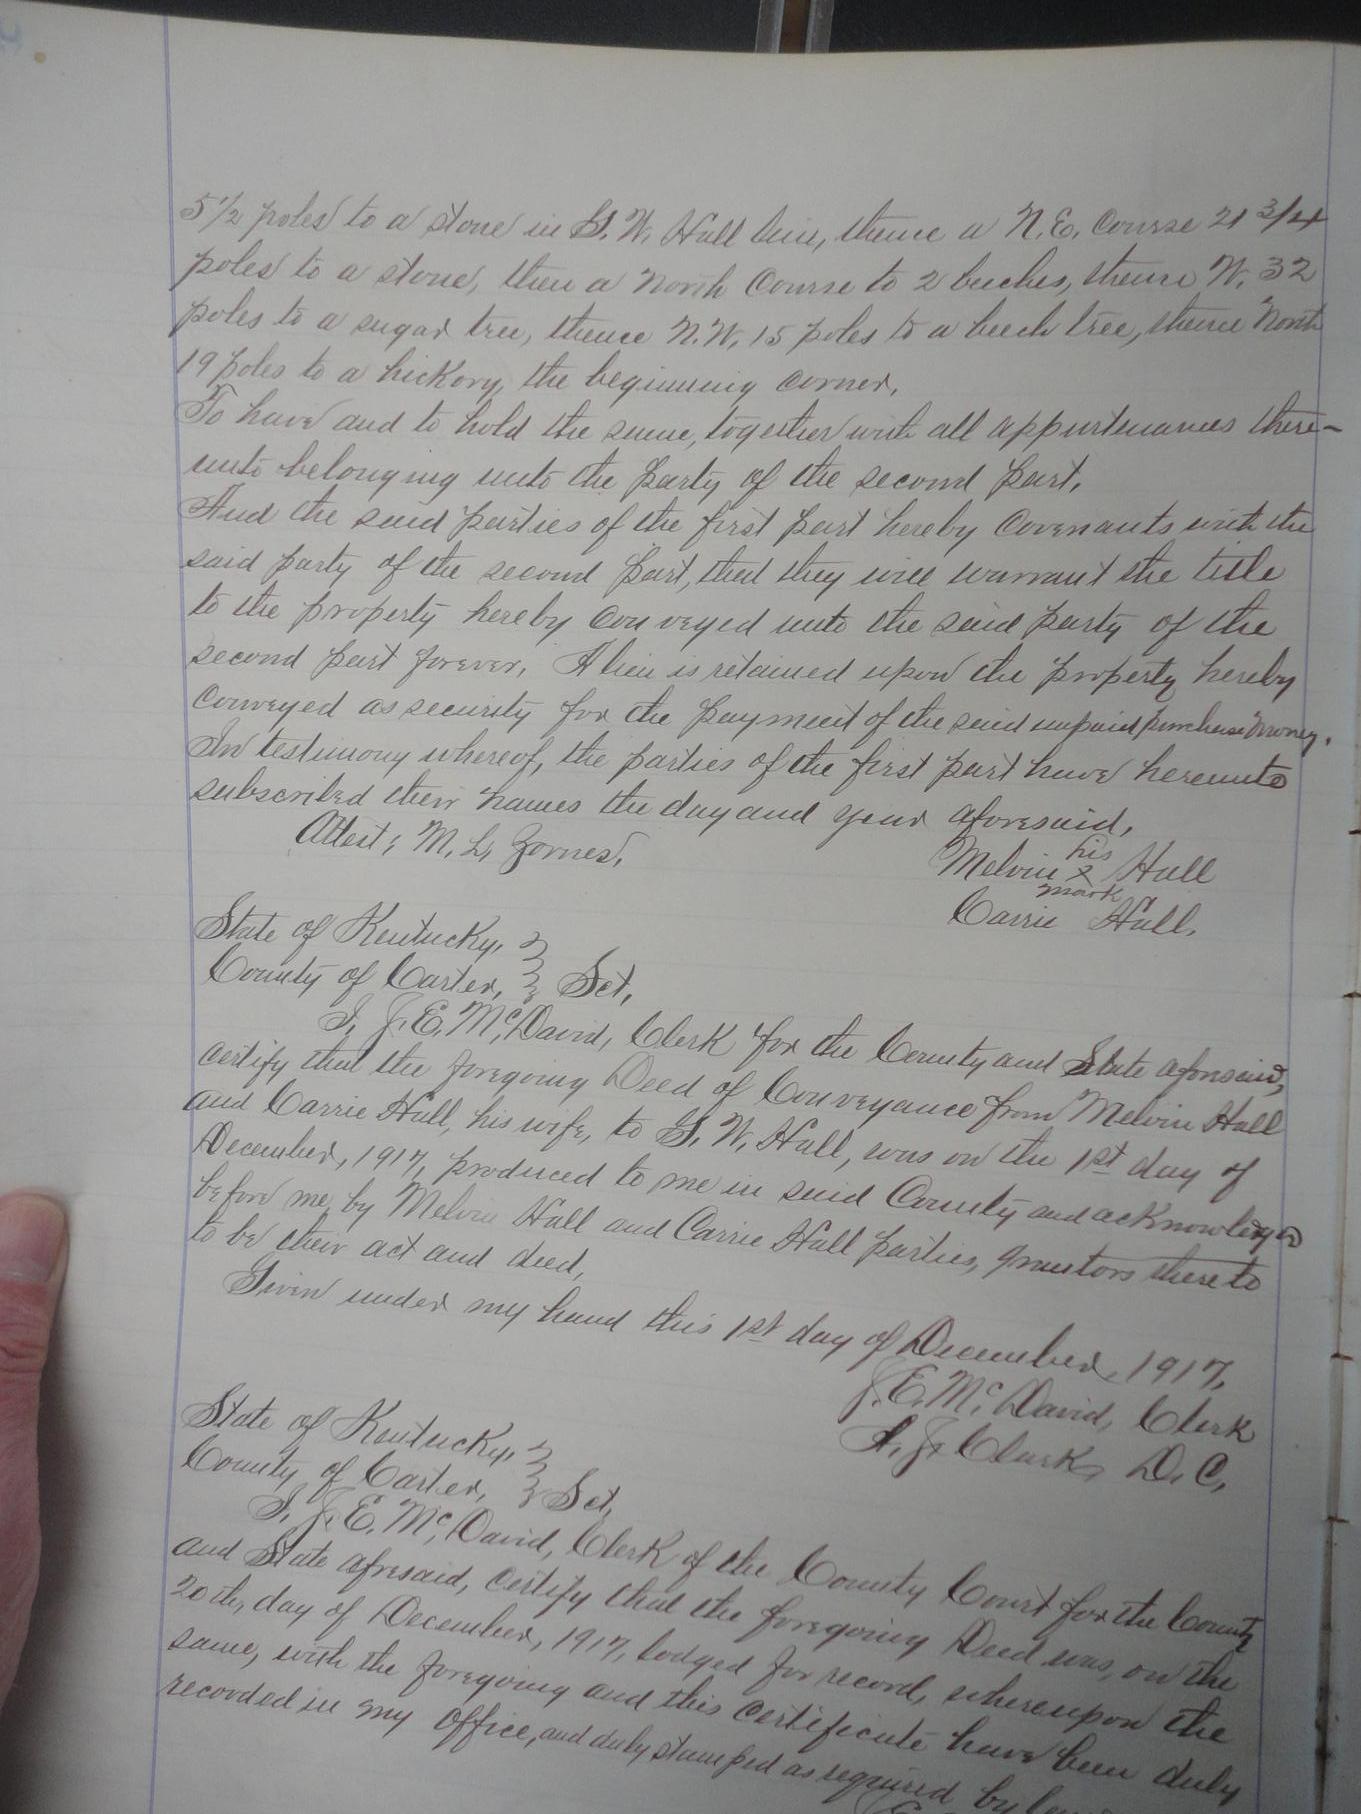 5 1/2 poles to a stone in G. W. Hall line, thence a N.E. Course 21 3/4
poles to a stone, then a North Course to 2 beeches, thence W. 32
poles to a sugar tree, thence N.W. 15 poles to a beech tree, thence North
19 poles to a hickory, the beginning corner.
To have and to hold the same, together with all appurtenances there-
unto belonging unto the party of the second part.
And the said parties of the first part hereby Covenants with the
said party of the second part, that they will warrant the title
to the property hereby Conveyed unto the said party of the
second part forever. A lien is retained upon the property hereby
Conveyed as security for the payment of the said unpaid purchase money.
In testimony whereof, the parties of the first part have hereunto
subscribed their names the day and year aforesaid.
Attest; M. L. Zornes.
his
Melvin X Hall
mark
Carrie Hall.
State of Kentucky, }
County of Carter, } Sct.
I, J. E. McDavid, Clerk for the County and State aforesaid,
certify that the foregoing Deed of Conveyance from Melvin Hall
and Carrie Hall, his wife, to G. W. Hall, was on the 1st day of
December, 1917, produced to me in said County and acknowledged
before me, by Melvin Hall and Carrie Hall parties, grantors thereto
to be their act and deed.
Given under my hand this 1st day of December, 1917.
J. E. McDavid, Clerk
J. Clark, D. C.
State of Kentucky, }
County of Carter, } Sct.
I, J. E. McDavid, Clerk of the County Court for the County
and State afresaid, certify that the foregoing Deed was, on the
20th, day of December, 1917, lodged for record, whereupon the
same, with the foregoing and this certificate have been duly
recorded in my office, and duly stamped as required by law